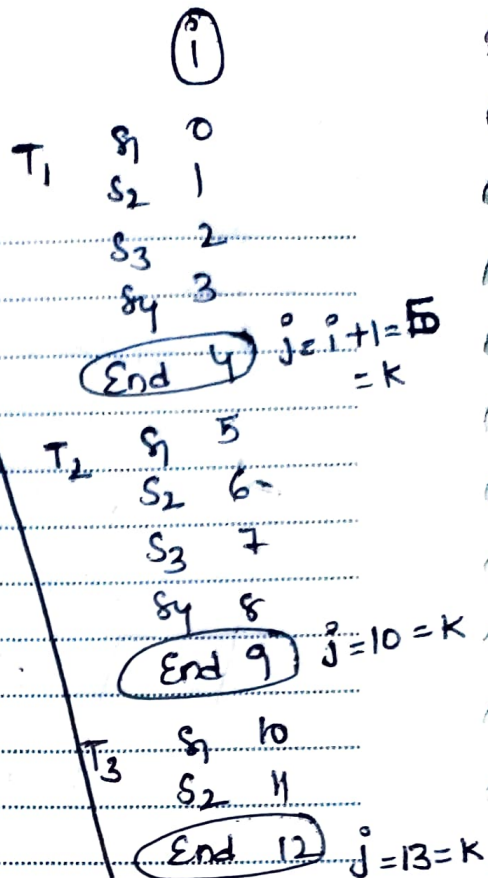 i
T1 S1 0
S2 1
S3 2
S4 3
End 4 j=i+1=5
=K
T2 S1 5
S2 6-
S3 7
S4 8
End 9 j=10=K
T3 S1 10
S2 11
End 12 j=13=K